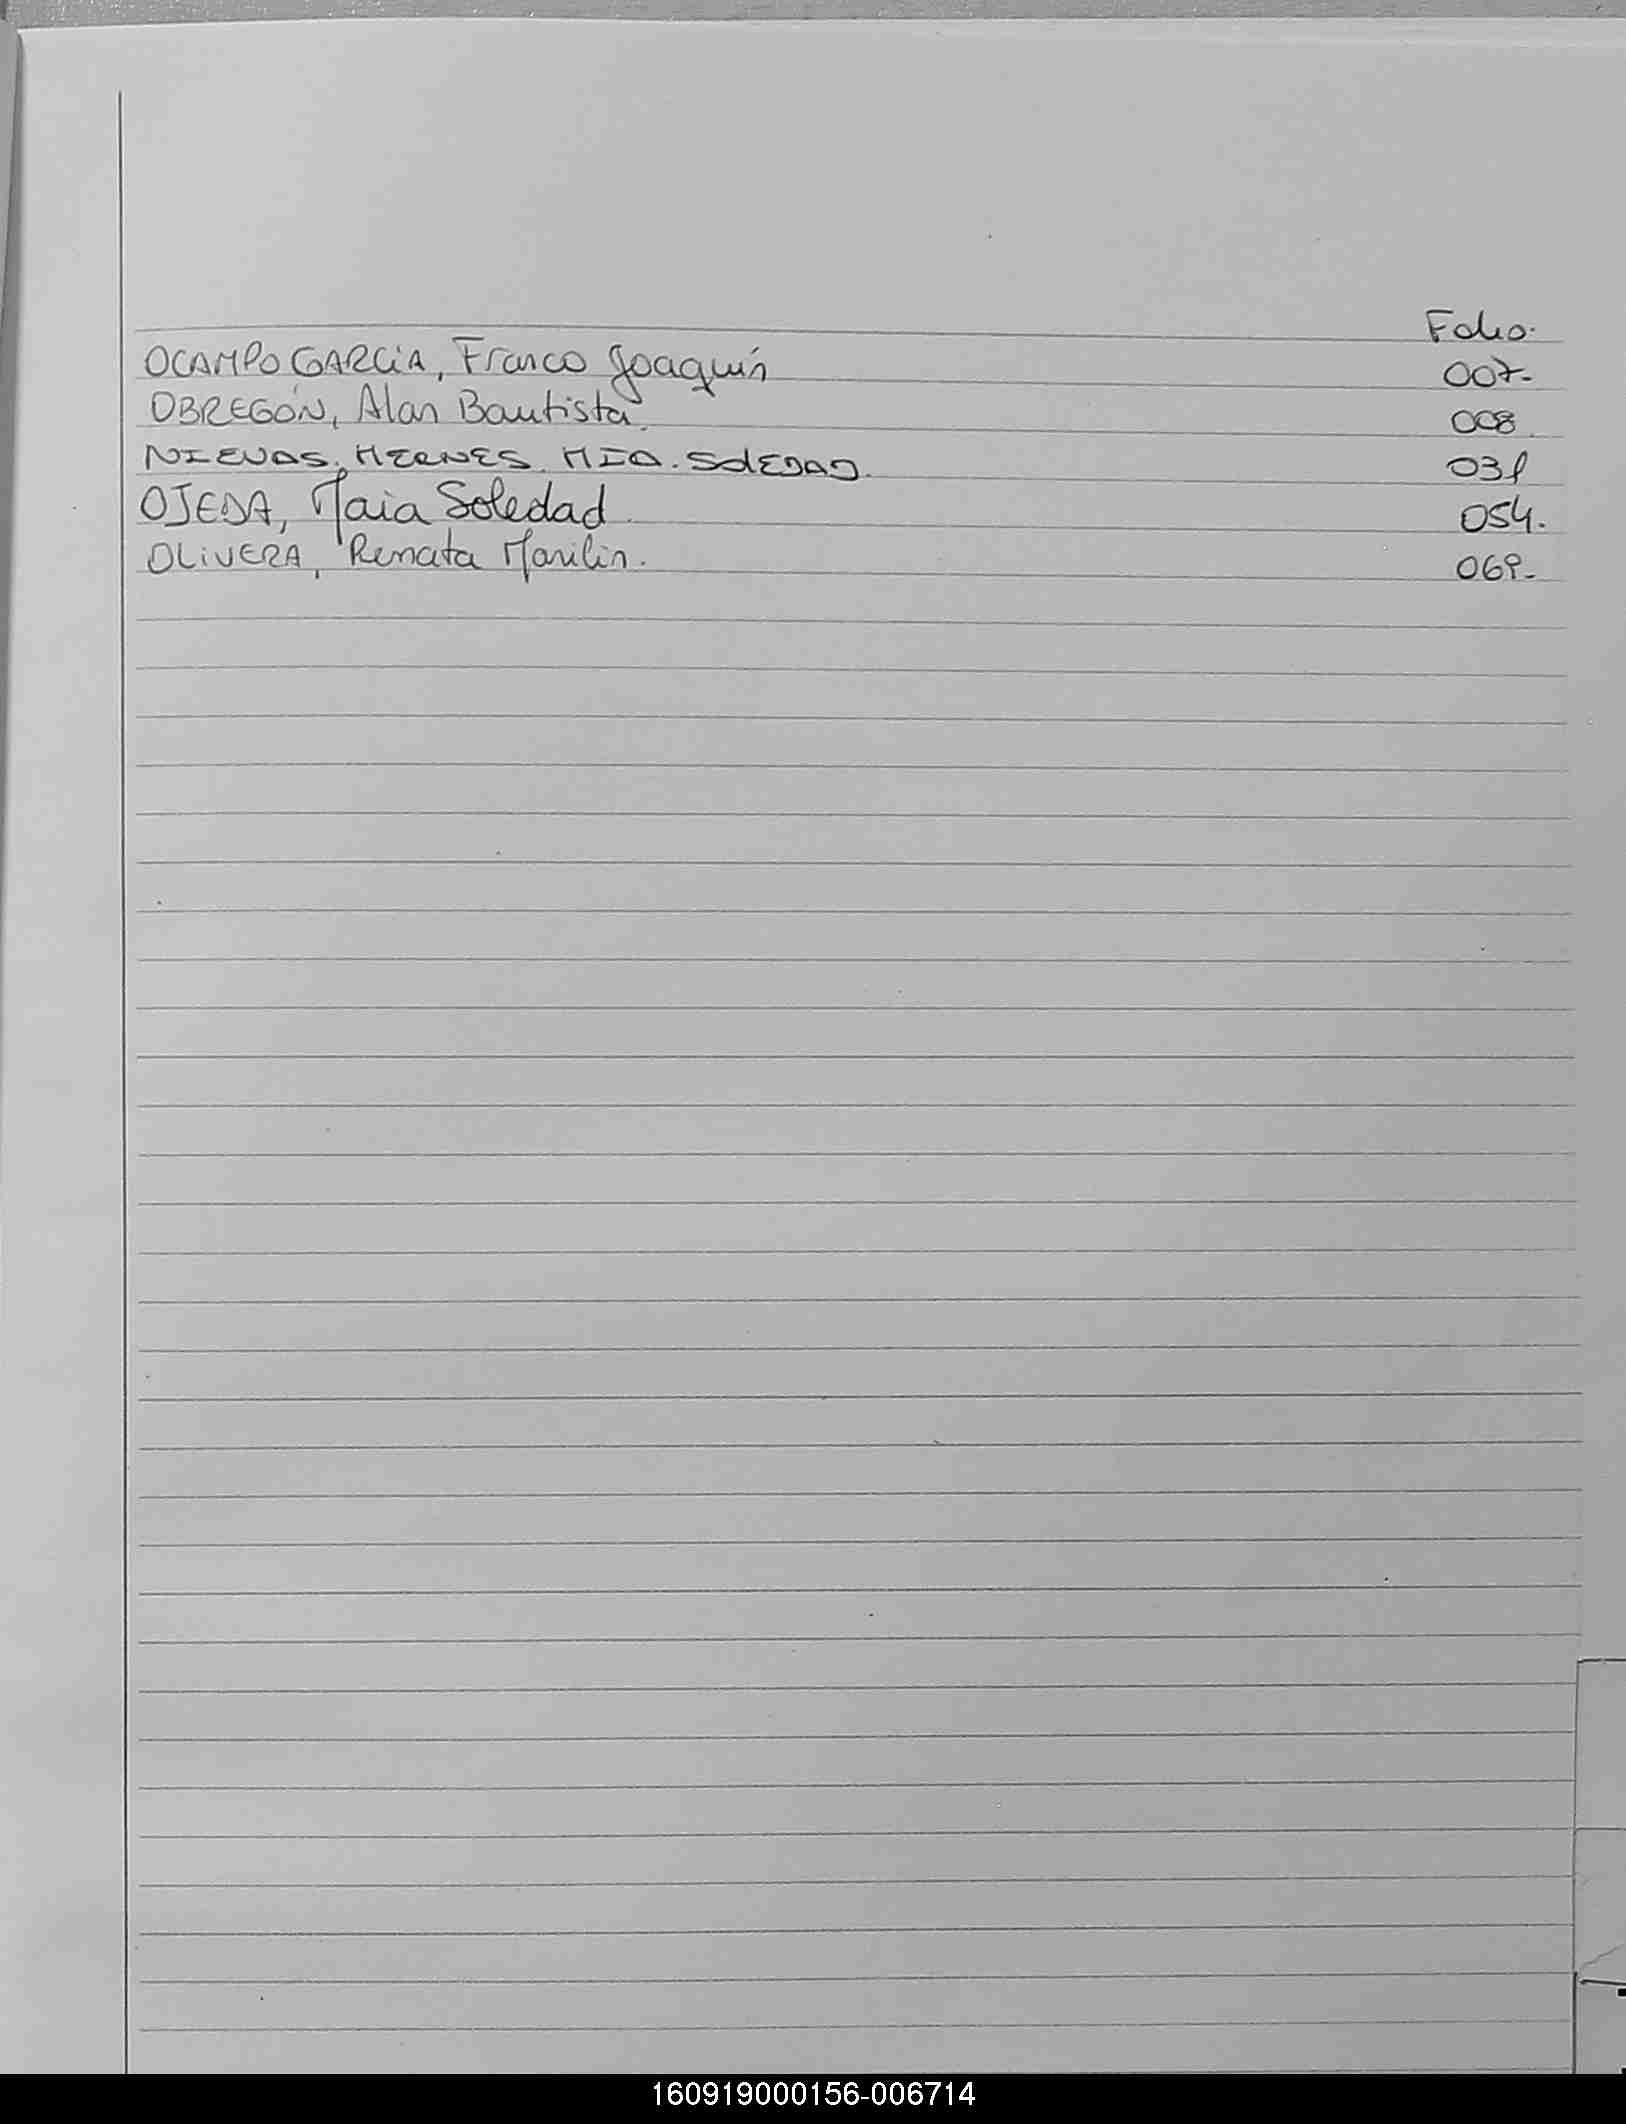 Folio.
OCAMPO GARCiA, Franco Joaquín 007-
OBREGÓN, Alan Bautista. 008
NIEVAS, MERNES. MIA. SOLEDAD. 031
OJEDA, Maia Soledad 054.
OLiVERA, Renata Marilin. 069-
160919000156-006714